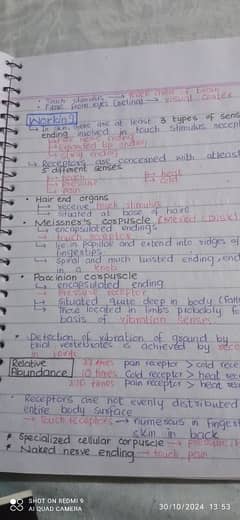 • Touch stimulus → touch area of brain
• Fibres from eyes (retina) → visual cortex
Working
↳ In skin, there are at least 3 types of sens
ending involved in touch stimulus recept
↳ free nerve ending
↳ Expanded tip ending
↳ Spray ending
↳ Receptors are concerned with atleast
5 different senses
↳ touch ↳ heat
↳ Pressure ↳ cold
↳ pain
• Hair end organs
↳ receive touch stimulus
↳ situated at base of hairs
• Meissner's corpuscle (Merkel disk)
↳ encapsulated endings
↳ touch receptor
↳ lie in papillae and extend into ridges of
fingertips
↳ Spiral and much twisted ending, end
in a knob
• Paccinian corpuscle
↳ encapsulated ending
↳ pressure receptor
↳ Situated quite deep in body
↳ Those located in limbs probably fo
basis of vibration senses
• Detection of vibration of ground by
trial vertebrates is achieved by rece
in joints
Relative Abundance
27 times pain receptor > cold rece
10 times cold receptor > heat rece
270 times pain receptor > heat rece
• Receptors are not evenly distributed
entire body surface
→ touch receptors → numerous in finger
skin in back
• Specialized cellular corpuscle → pressure
• Naked nerve ending → touch pain
SHOT ON REDMI 9
AI QUAD CAMERA
30/10/2024 13:53